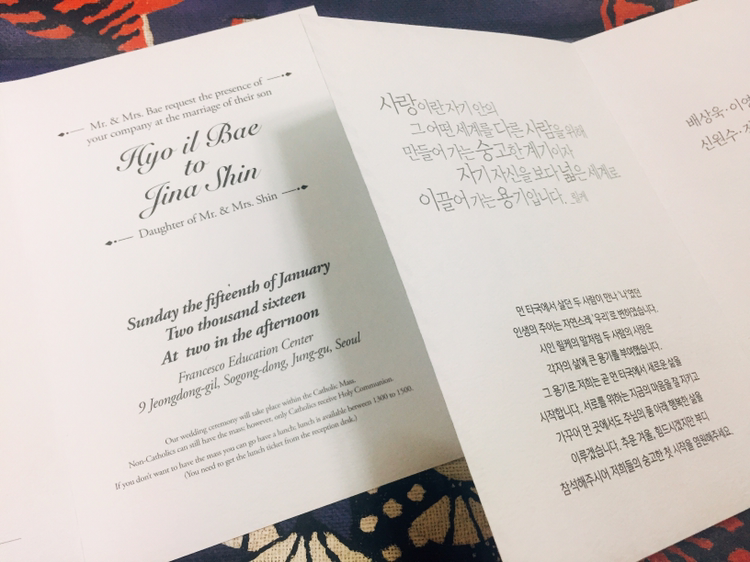 Mr. & Mrs. Bae request the presence of
your company at the marriage of their son
Hyo il Bae
to
Jina Shin
Daughter of Mr. & Mrs. Shin
Sunday the fifteenth of January
Two thousand sixteen
At two in the afternoon
Francesco Education Center
9 Jeongdong-gil, Sogong-dong, Jung-gu, Seoul
Our wedding ceremony will take place within the Catholic Mass.
Non-Catholics can still have the mass; however, only Catholics receive Holy Communion.
If you don't want to have the mass you can go have a lunch; lunch is available between 1300 to 1500.
(You need to get the lunch ticket from the reception desk.)
사랑이란 자기 안의
그 어떤 세계를 다른 사람을 위해
만들어 가는 숭고한 계기이자
자기 자신을 보다 넓은 세계로
이끌어 가는 용기입니다. _릴케
먼 타국에서 살던 두 사람이 만나 '나'였던
인생의 주어는 자연스레 '우리'로 변하였습니다.
시인 릴케의 말처럼 두 사람의 사랑은
각자의 삶에 큰 용기를 부여했습니다.
그 용기로 저희는 곧 먼 타국에서 새로운 삶을
시작합니다. 서로를 위하는 지금의 마음을 잘 지키고
가꾸어 먼 곳에서도 주님의 품 아래 행복한 삶을
이루겠습니다. 추운 겨울, 힘드시겠지만 부디
참석해주시어 저희들의 숭고한 첫 시작을 응원해주세요.
배상욱·이영
신원수·